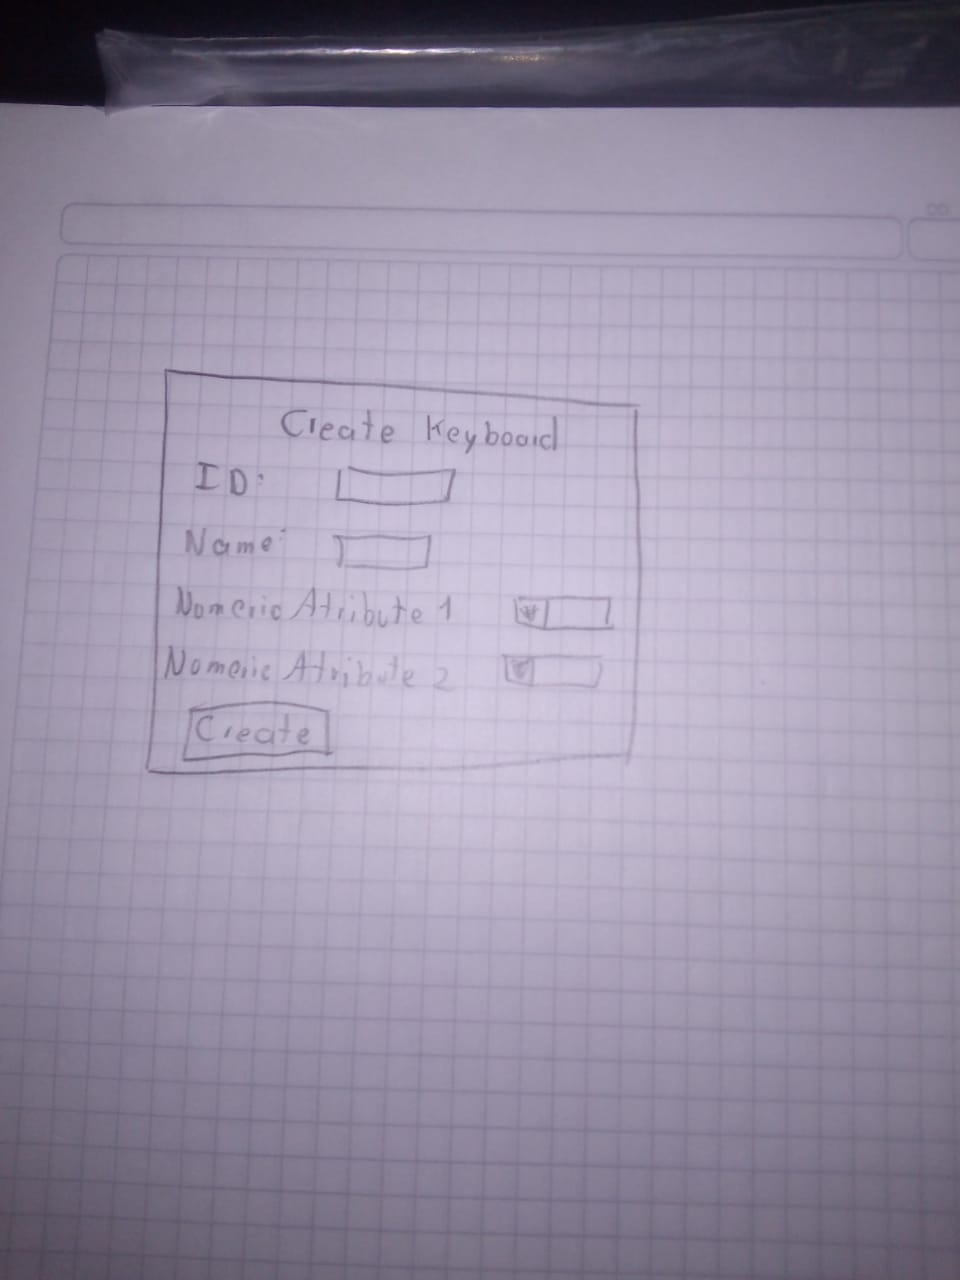 Create Keyboard
ID:
Name:
Nomeric Atribute 1
Nomeric Atribute 2
Create